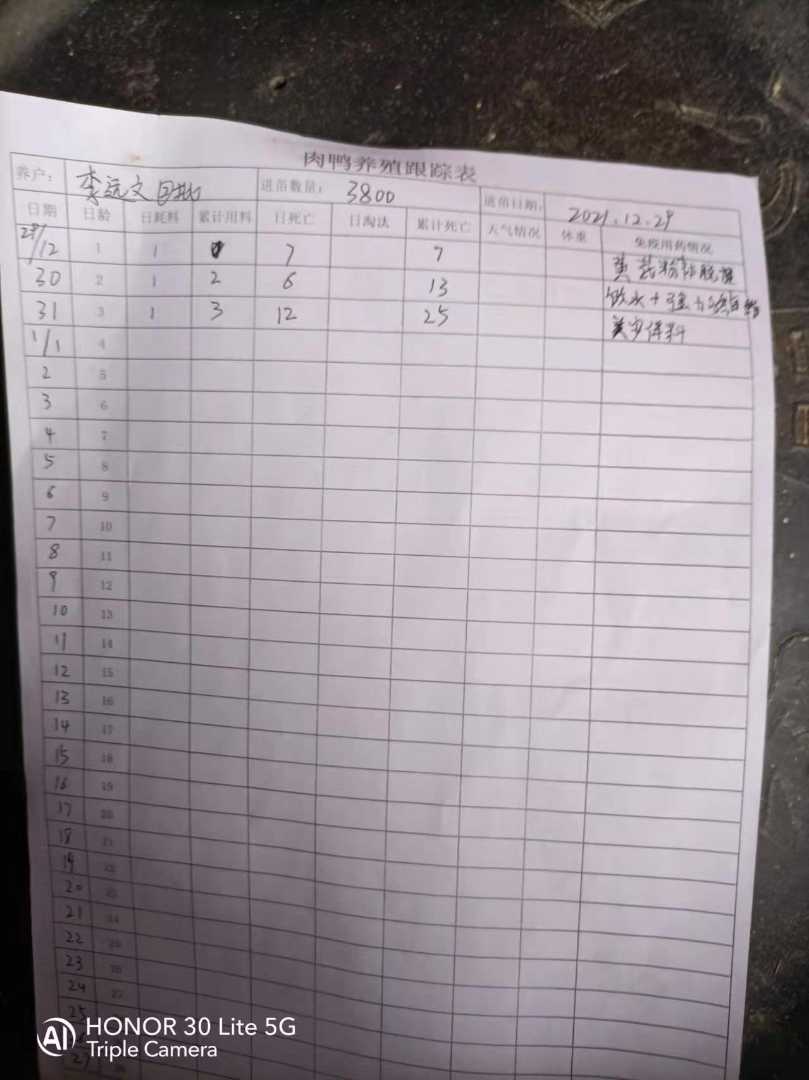 肉鸭养殖跟踪表
养户： 李远文 进苗数量： 3800 进苗日期： 2021.12.29
日期 日龄 日耗料 累计用料 日死亡 日淘汰 累计死亡 天气情况 体重 免疫用药情况
29/12 1 1 7 7
30 2 1 2 6 13 饮水+强力
31 3 1 3 12 25
1/1 4
2 5
3 6
4 7
5 8
6 9
7 10
8 11
9 12
10 13
11 14
12 15
13 16
14 17
15 18
16 19
17 20
18 21
19 22
20 23
21 24
22 25
23 26
24 27
25
27
HONOR 30 Lite 5G
Triple Camera